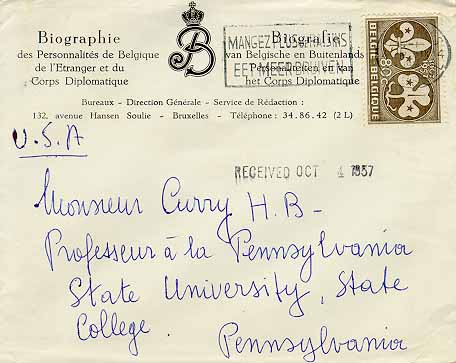 Biographie
des Personnalités de Belgique
de l'Etranger et du
Corps Diplomatique
B
Biografie
van Belgische en Buitenlands
Personaliteiten en van
het Corps Diplomatique
MANGEZ PLUS DE RAISINS
EET MEER DRUIVEN
BELGIE-BELGIQUE
80c
Bureaux - Direction Générale - Service de Rédaction :
132, avenue Hansen Soulie - Bruxelles - Téléphone : 34.86.42 (2 L)
U.S.A
RECEIVED OCT 4 1957
Monsieur Curry H.B -
Professeur à la Pennsylvania
State University, State
College.
Pennsylvania